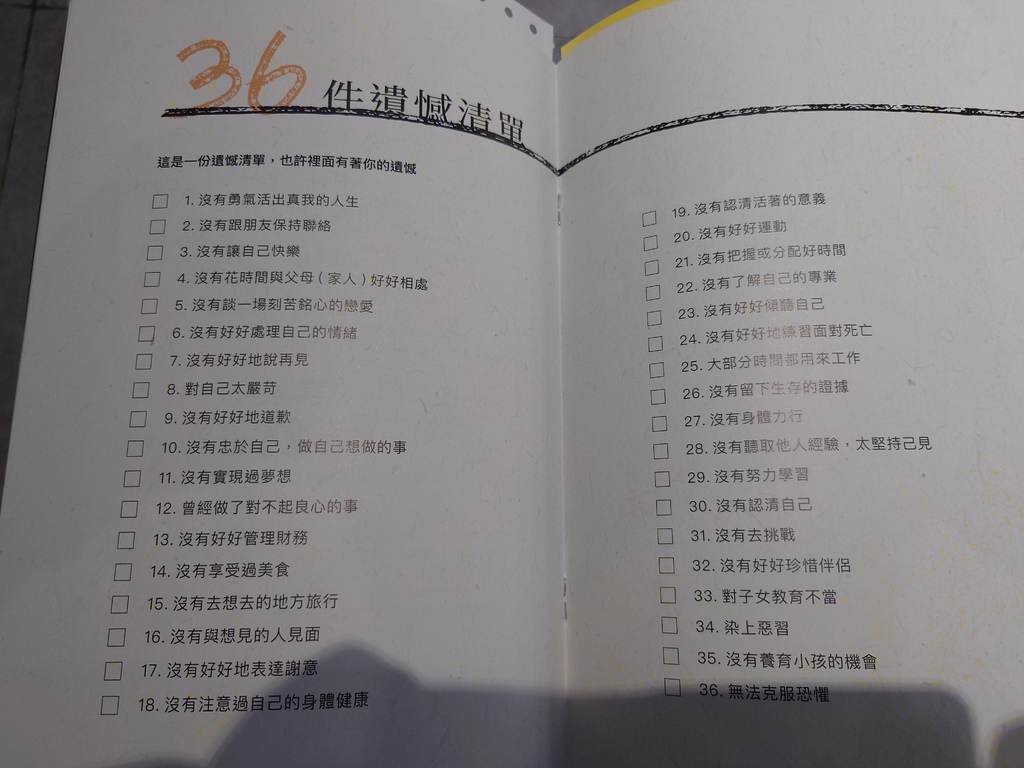 36 件遺憾清單
這是一份遺憾清單，也許裡面有著你的遺憾
□ 1. 沒有勇氣活出真我的人生
□ 2. 沒有跟朋友保持聯絡
□ 3. 沒有讓自己快樂
□ 4. 沒有花時間與父母（家人）好好相處
□ 5. 沒有談一場刻苦銘心的戀愛
□ 6. 沒有好好處理自己的情緒
□ 7. 沒有好好地說再見
□ 8. 對自己太嚴苛
□ 9. 沒有好好地道歉
□ 10. 沒有忠於自己，做自己想做的事
□ 11. 沒有實現過夢想
□ 12. 曾經做了對不起良心的事
□ 13. 沒有好好管理財務
□ 14. 沒有享受過美食
□ 15. 沒有去想去的地方旅行
□ 16. 沒有與想見的人見面
□ 17. 沒有好好地表達謝意
□ 18. 沒有注意過自己的身體健康
□ 19. 沒有認清活著的意義
□ 20. 沒有好好運動
□ 21. 沒有把握或分配好時間
□ 22. 沒有了解自己的專業
□ 23. 沒有好好傾聽自己
□ 24. 沒有好好地練習面對死亡
□ 25. 大部分時間都用來工作
□ 26. 沒有留下生存的證據
□ 27. 沒有身體力行
□ 28. 沒有聽取他人經驗，太堅持己見
□ 29. 沒有努力學習
□ 30. 沒有認清自己
□ 31. 沒有去挑戰
□ 32. 沒有好好珍惜伴侶
□ 33. 對子女教育不當
□ 34. 染上惡習
□ 35. 沒有養育小孩的機會
□ 36. 無法克服恐懼